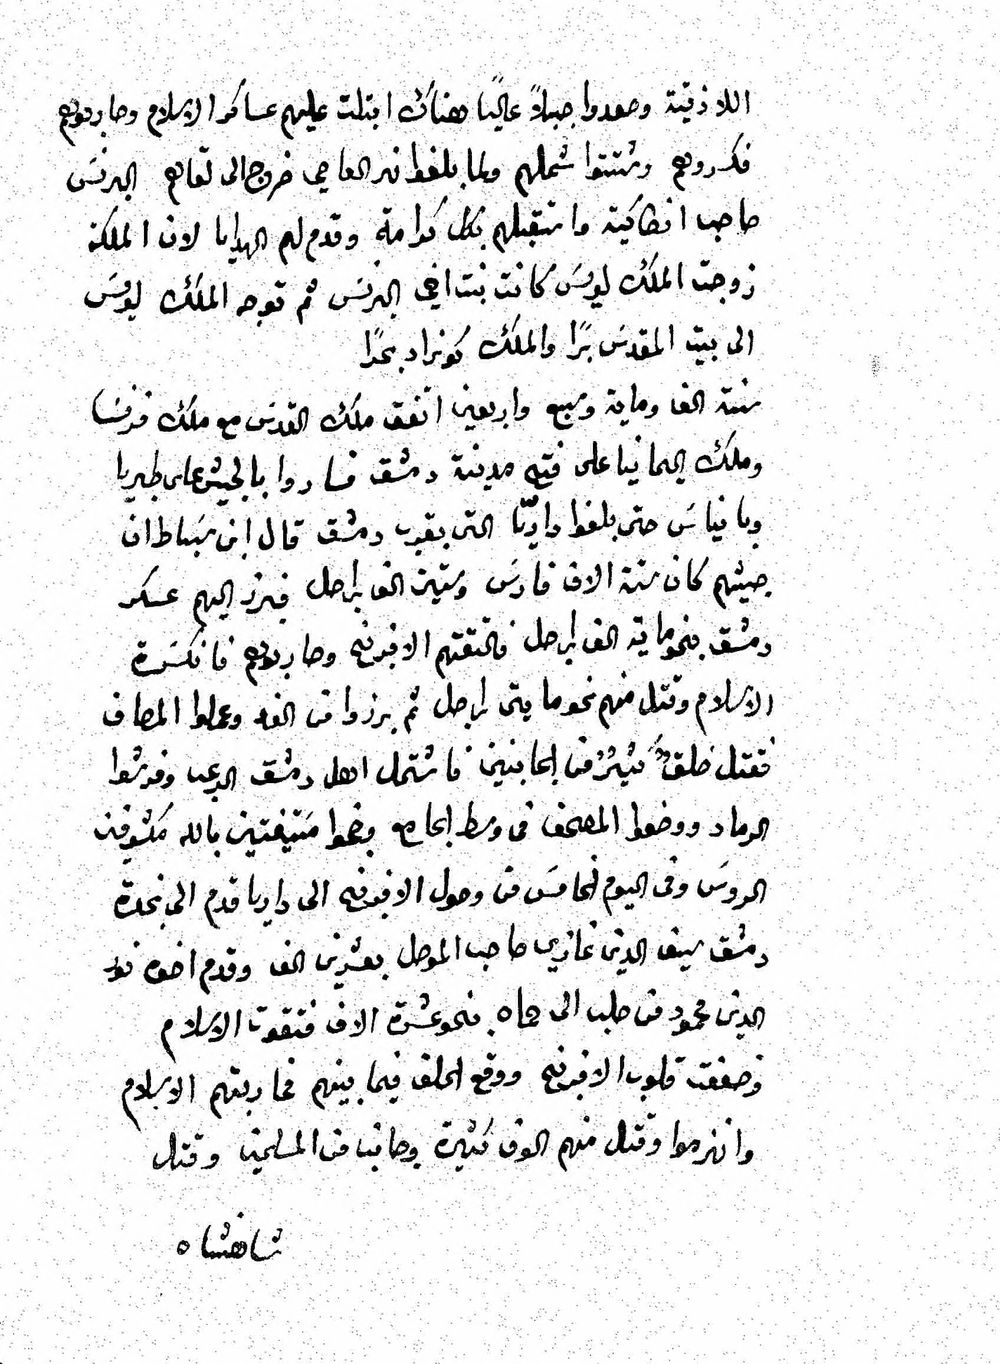 اللاذقية وصعدوا جبلاً عاليًا هناك اقبلت عليهم عساكر الاسلام وحاربوهم
فكسروهم وشتتوا شملهم ولما بلغوا نهر العاصي خروج الى لقاهم البرنس
صاحب انطاكية واستقبلهم بكل كرامة وقدم لهم الهدايا لان الملكة
زوجت الملك لويس كانت بنت اخي البرنس ثم توجه الملك لويس
الى بيت المقدس برًا والملك كونراد بحرًا
سنة الف وماية وسبع واربعين اتفق ملك القدس مع ملك فرنسا
وملك اليمانيا على فتح مدينة دمشق فساروا بالجيش على طبريا
وبانياس حتى بلغوا داريّا التي بقرب دمشق قال ابن سباط ان
جيشهم كان ستة الاف فارس وستين الف راجل فبرز اليهم عسكر
دمشق بنحو ماية الف راجل فالتقتهم الافرنج وحاربوهم فانكسرة
الاسلام وقتل منهم نحو مايتي راجل ثم برزوا من الغد وعملوا المصاف
فقتل خلقٌ كثيرٌ من الجانبين فاشتمل اهل دمشق الرعب وفرشوا
الرماد ووضعوا المصحف في وسط الجامع وضجوا مستغيثين بالله مكشوفين
الروس وفي اليوم الخامس من وصول الافرنج الى داريا قدم الى نجدة
دمشق سيف الدين غازي صاحب الموصل بعشرين الف وقدم اخوه نور
الدين محمود من حلب الى حماه بنحو عشرة الاف فتقوت الاسلام
وضعفت قلوب الافرنج ووقع الخلف فيما بينهم فحاربتهم الاسلام
وانهزموا وقتل منهم الوف كثيرة وجانب من المسلمين وقتل
شاهنشاه